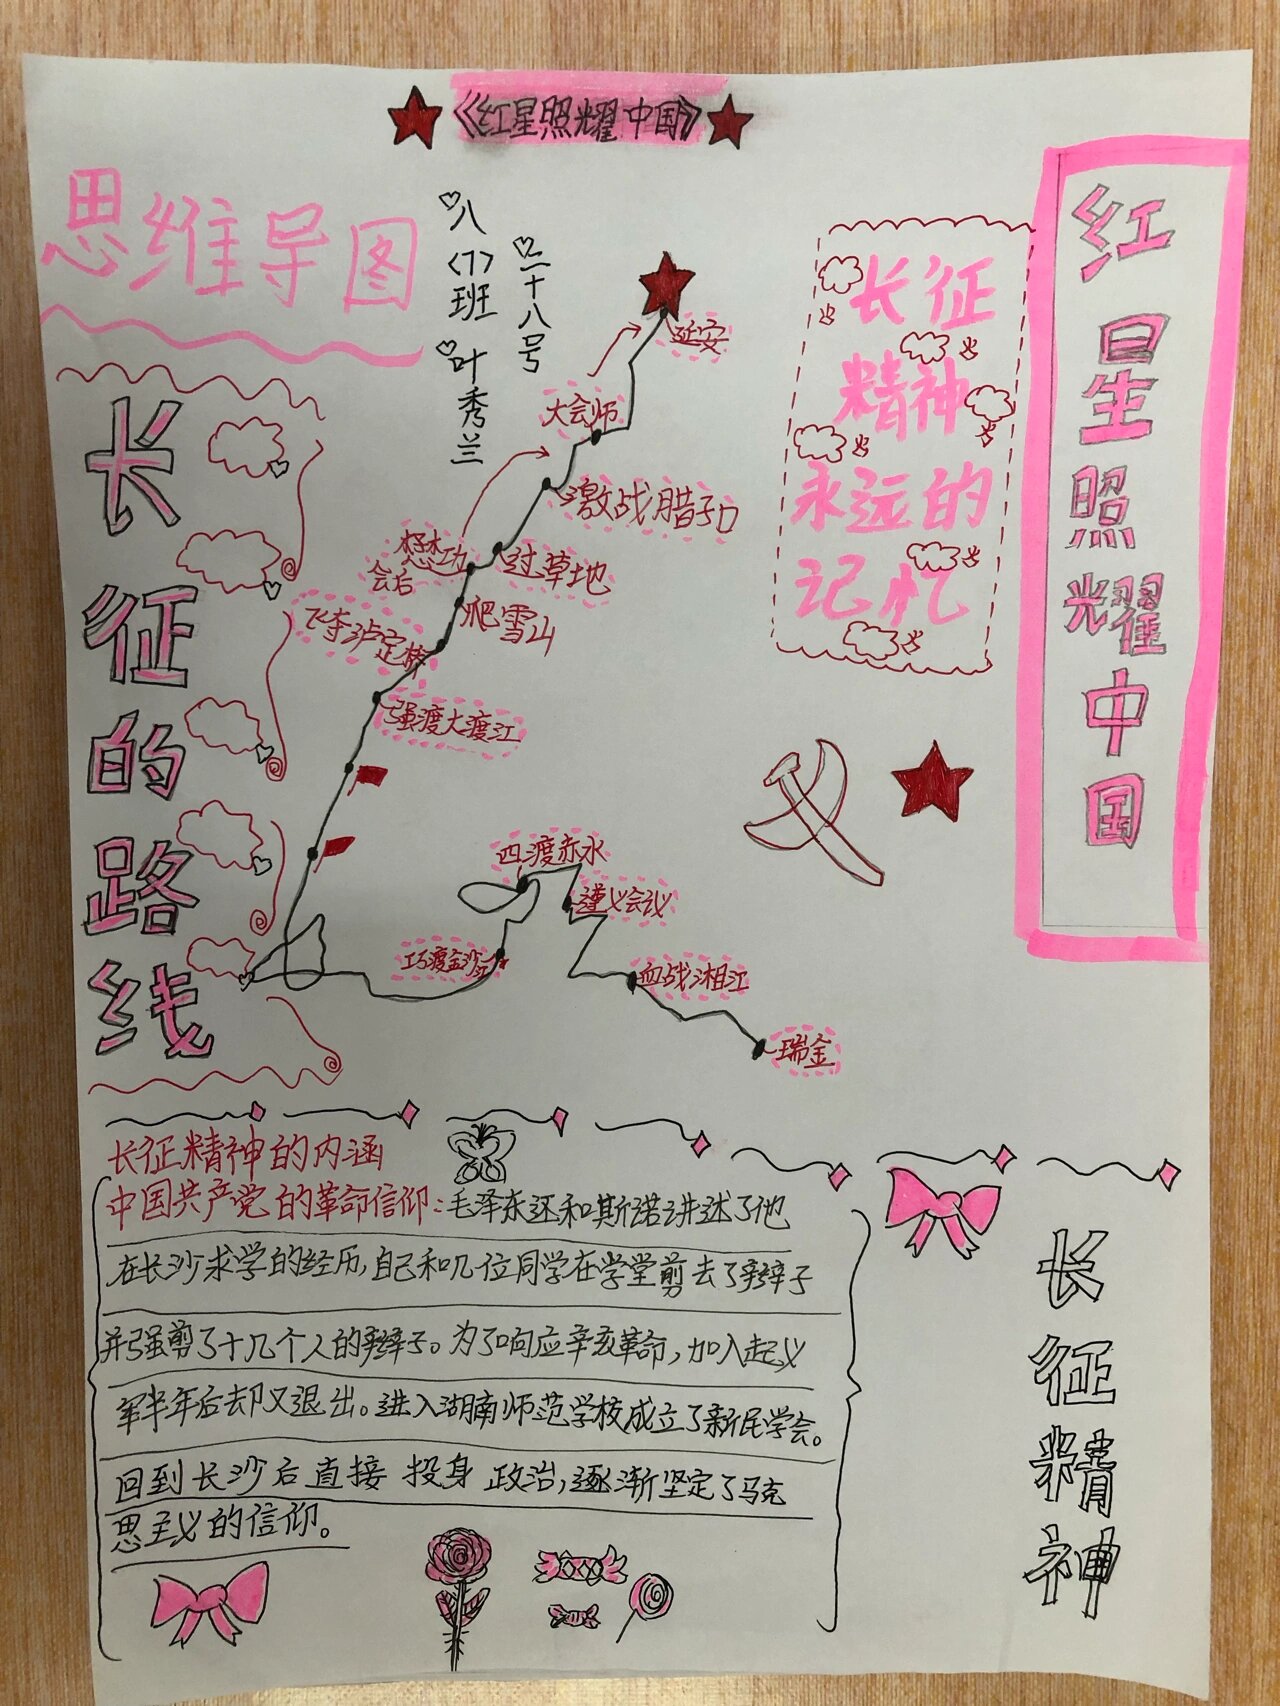 《红星照耀中国》
思维导图
八〈7〉班 叶秀兰
二十八号
红星照耀中国
长征
精神
永远的
记忆
长征的路线
延安
大会师
激战腊子口
过草地
会后
爬雪山
飞夺泸定桥
强渡大渡江
四渡赤水
遵义会议
巧渡金沙江
血战湘江
瑞金
长征精神的内涵
中国共产党的革命信仰：毛泽东还和斯诺讲述了他
在长沙求学的经历，自己和几位同学在学堂剪去了辫子
并强剪了十几个人的辫子。为了响应辛亥革命，加入起义
军半年后去却又退出。进入湖南师范学校成立了新民学会。
回到长沙后直接投身政治，逐渐坚定了马克
思主义的信仰。
长征精神